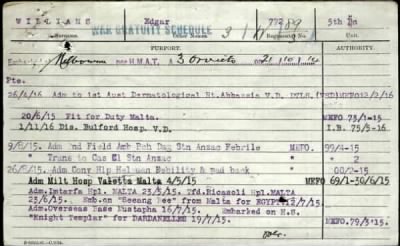 WILLIAMS Edgar 772 5th Bn
Surname. Other Names. Regimental No. Unit.
WAR GRATUITY SCHEDULE
PURPORT. AUTHORITY.
Melbourne per H.M.A.T. 3 Orvieto on 21/10/14
Pte.
26/4/16 Adm to 1st Aust Dermatological Ht.Abbassia V.D.
20/6/15 Fit for Duty Malta. MEFO 73/1-15
1/11/16 Dis. Bulford Hosp. V.D. I.B. 75/5-16
9/8/15. Adm 2nd Field Amb Reh Dag Stn Anzac Febrile MEFO. 99/4-15
" Trans to Cas Cl Stn Anzac " "
26/8/15. Adm Conv Hlp Helwan 00/2-15
Adm Milt Hosp Valetta Malta 4/5/15 MEFO 69/1-30/6/15
Adm.Imtarfa Hpl. MALTA 23/5/15. Tfd.Ricasoli Hpl.MALTA
23/6/15. Emb.on "Seeang Bee" from Malta for EGYPT 12/7/15.
Adm.Overseas Base Mustapha 16/7/15. Embarked on H.S.
"Knight Templar" for DARDANELLES 19/7/15. MEFO.79/3*15.